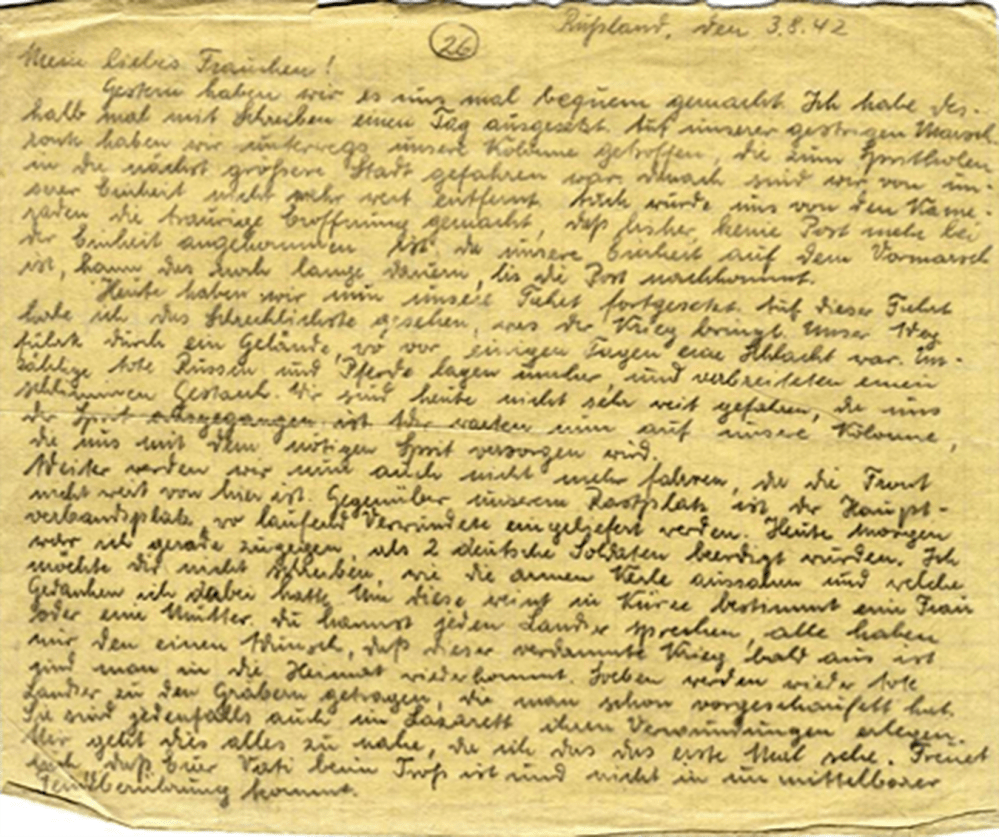 Rußland, den 3.8.42
26
Mein liebes Frauchen!
Gestern haben wir es uns mal bequem gemacht. Ich habe des-
halb mal mit Schreiben einen Tag ausgesetzt. Auf unserer gestrigen Marsch-
route haben wir unterwegs unsere Kolonne getroffen, die zum Spritholen
in die nächst größere Stadt gefahren war, danach sind wir von un-
serer Einheit nicht mehr weit entfernt. Auch wurde uns von den Kame-
raden die traurige Eröffnung gemacht, daß bisher keine Post mehr bei
der Einheit angekommen ist, da unsere Einheit auf dem Vormarsch
ist, kann das noch lange dauern, bis die Post nachkommt.
Heute haben wir nun unsere Fahrt fortgesetzt. Auf dieser Fahrt
habe ich das Schrecklichste gesehen, was der Krieg bringt. Unser Weg
führt durch ein Gelände, wo vor einigen Tagen eine Schlacht war. Un-
zählige tote Russen und Pferde lagen umher, und verbreiteten einen
schlimmen Gestank. Wir sind heute nicht sehr weit gefahren, da uns
der Sprit ausgegangen ist. Wir warten nun auf unsere Kolonne,
die uns mit dem nötigen Sprit versorgen wird.
Weiter werden wir nun auch nicht mehr fahren, da die Front
nicht weit von hier ist. Gegenüber unserem Rastplatz ist der Haupt-
verbandsplatz, wo laufend Verwundete eingeliefert werden. Heute morgen
war ich gerade zugegen, als 2 deutsche Soldaten beerdigt wurden. Ich
möchte dir nicht schreiben, wie die armen Kerle aussahen und welche
Gedanken ich dabei hatte. Um diese weint in Kürze bestimmt eine Frau
oder eine Mutter. Du kannst jeden Landser sprechen, alle haben
nur den einen Wunsch, daß dieser verdammte Krieg bald aus ist
und man in die Heimat wiederkommt. Soeben werden wieder tote
Landser zu den Gräbern getragen, die man schon vorgeschaufelt hat.
Sie sind jedenfalls auch im Lazarett ihren Verwundungen erlegen.
Mir geht dies alles zu nahe, da ich das das erste Mal sehe. Freuet
euch, daß Euer Vati beim Troß ist und nicht in unmittelbarer
Feindberührung kommt.